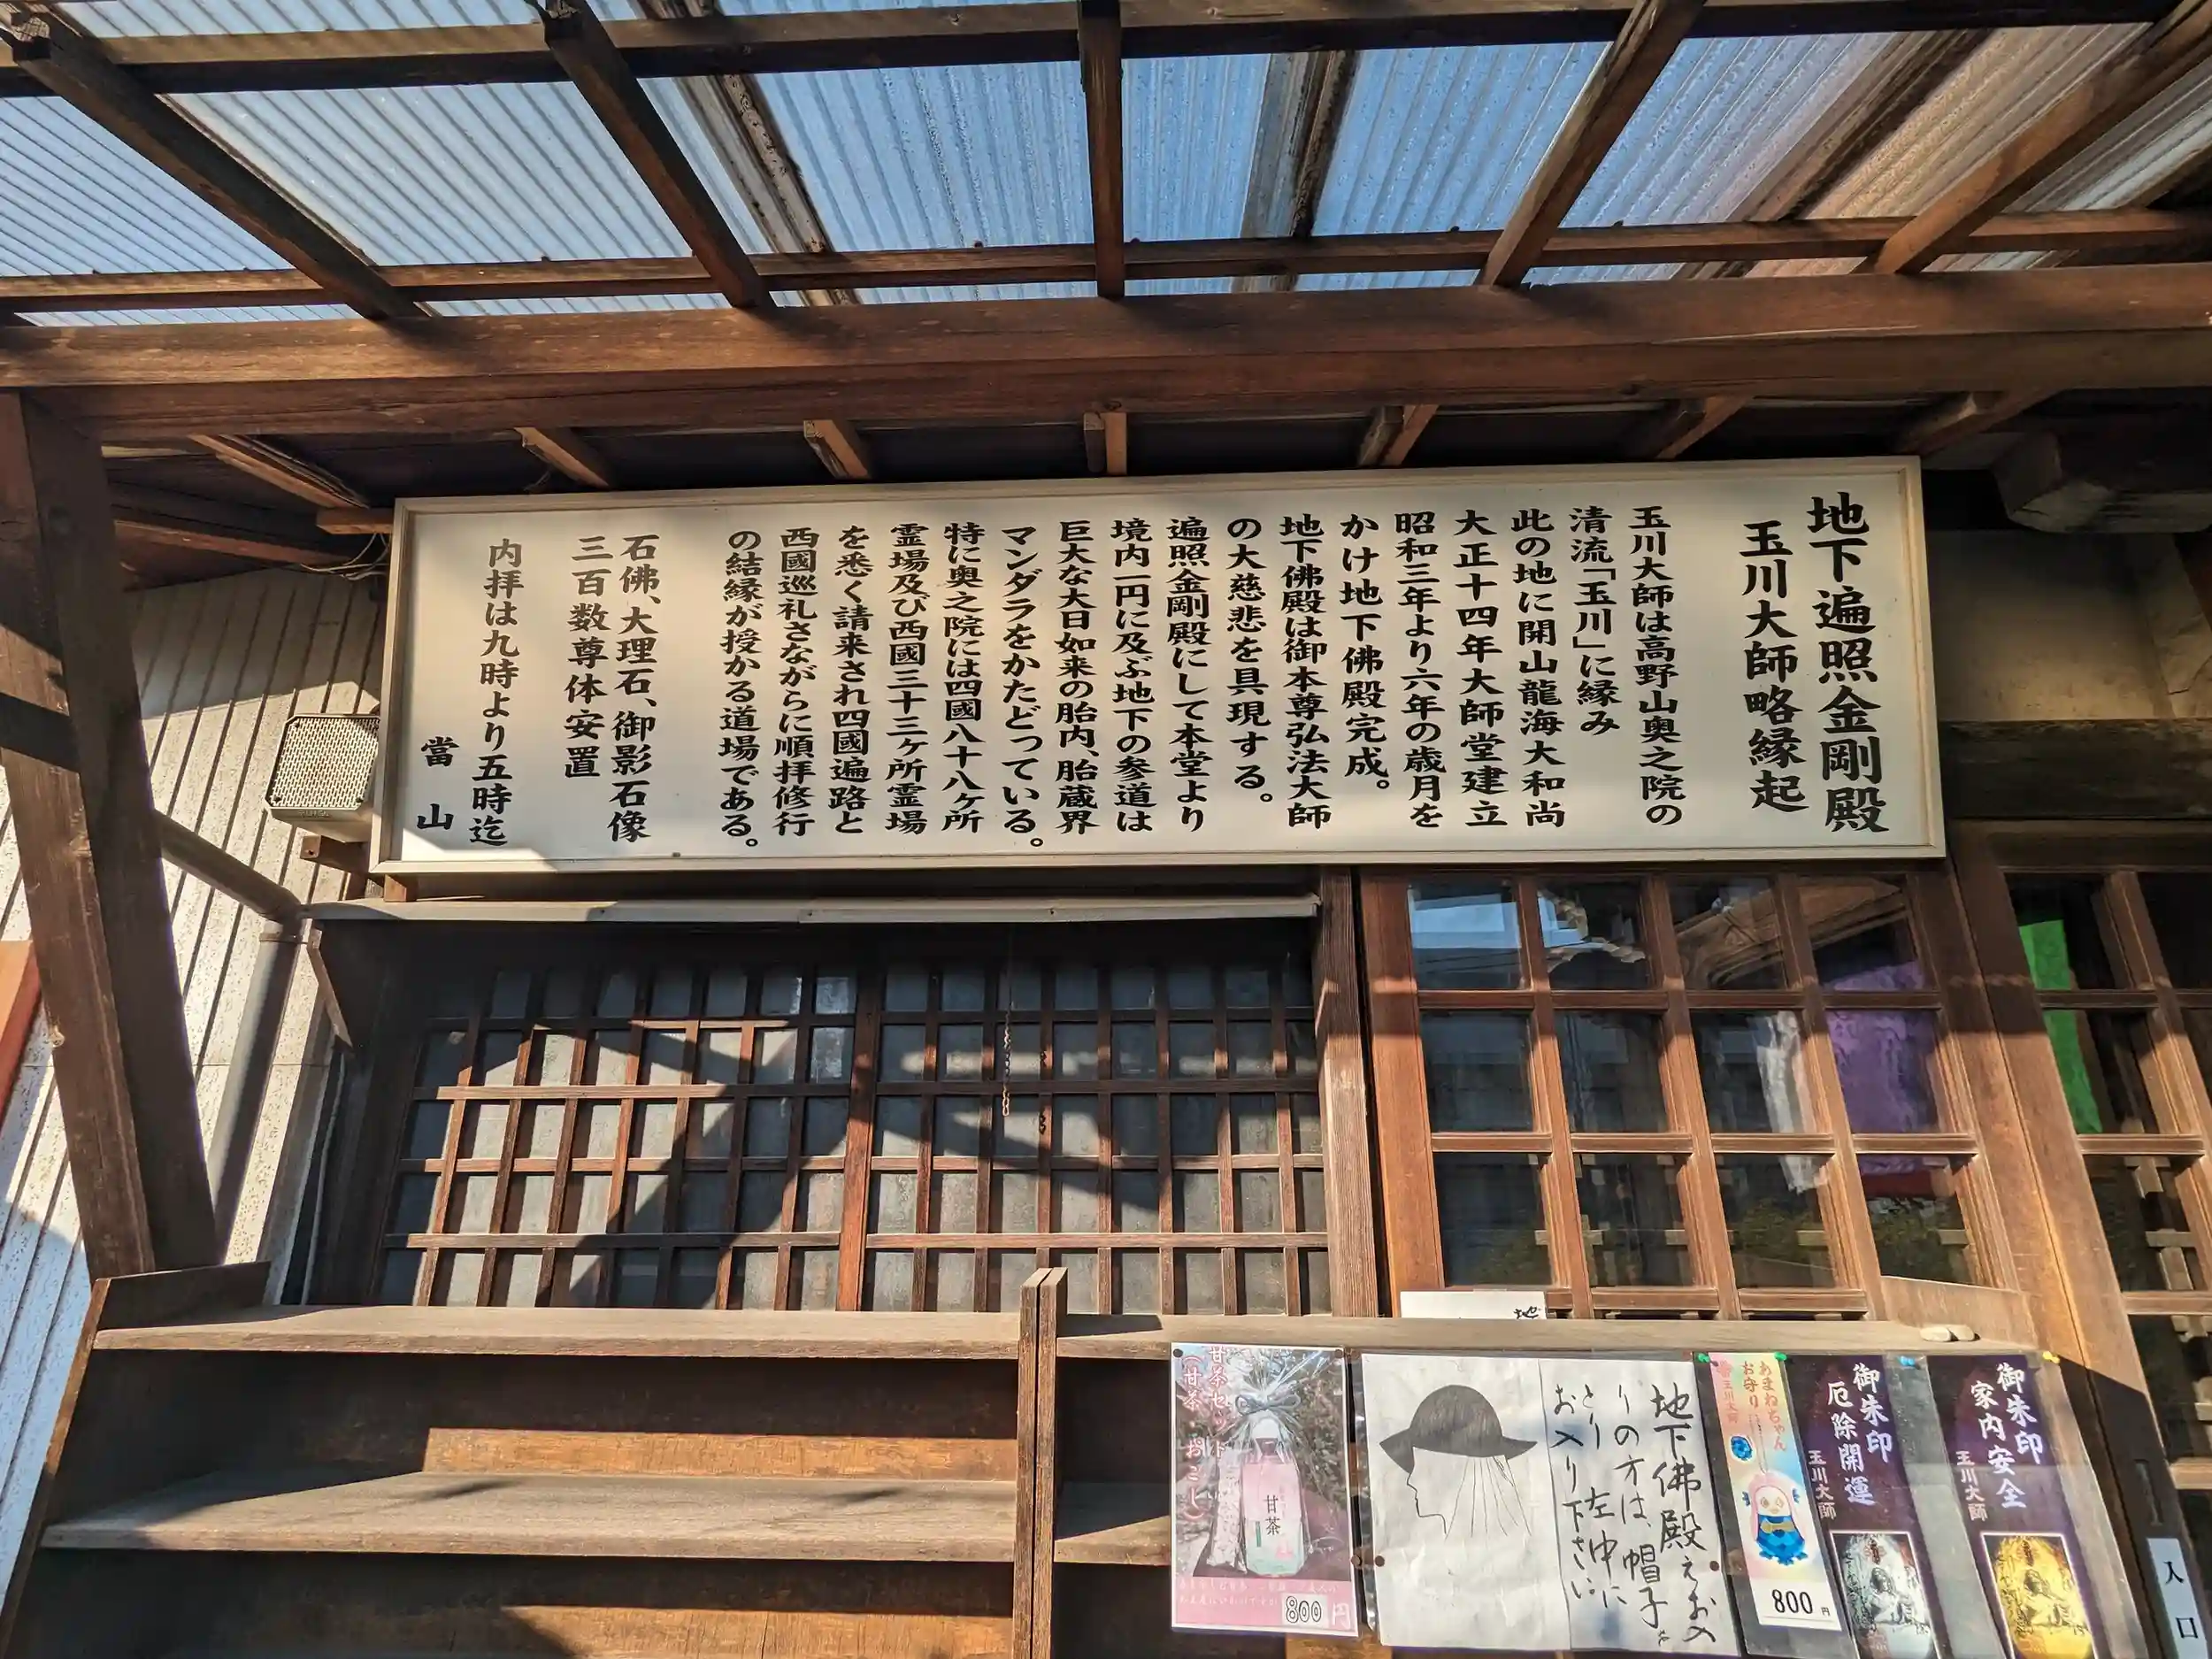 地下遍照金剛殿
玉川大師略縁起
玉川大師は高野山奥之院の
清流「玉川」に縁み
此の地に開山龍海大和尚
大正十四年大師堂建立
昭和三年より六年の歳月を
かけ地下佛殿完成。
地下佛殿は御本尊弘法大師
の大慈悲を具現する。
遍照金剛殿にして本堂より
境内一円に及ぶ地下の参道は
巨大な大日如来の胎内、胎蔵界
マンダラをかたどっている。
特に奥之院には四國八十八ヶ所
霊場及び西國三十三ヶ所霊場
を悉く請来され四國遍路と
西國巡礼さながらに順拝修行
の結縁が授かる道場である。
石佛、大理石、御影石像
三百数尊体安置
内拝は九時より五時迄
當山
御朱印
家内安全
玉川大師
御朱印
厄除開運
玉川大師
あまねちゃん
お守り
玉川大師
800円
地下佛殿えお入
りの方は、帽子を
とり左中に
お入り下さい
甘茶セット
(甘茶・おこし)
甘茶
800円
入口